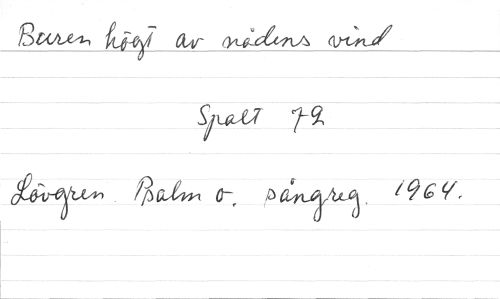 Buren högt av nådens vind
Spalt 72
Lövgren. Psalm o. sångreg. 1964.